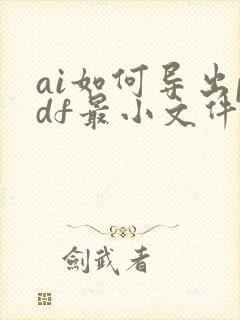 ai如何导出p
df最小文件
劍武者